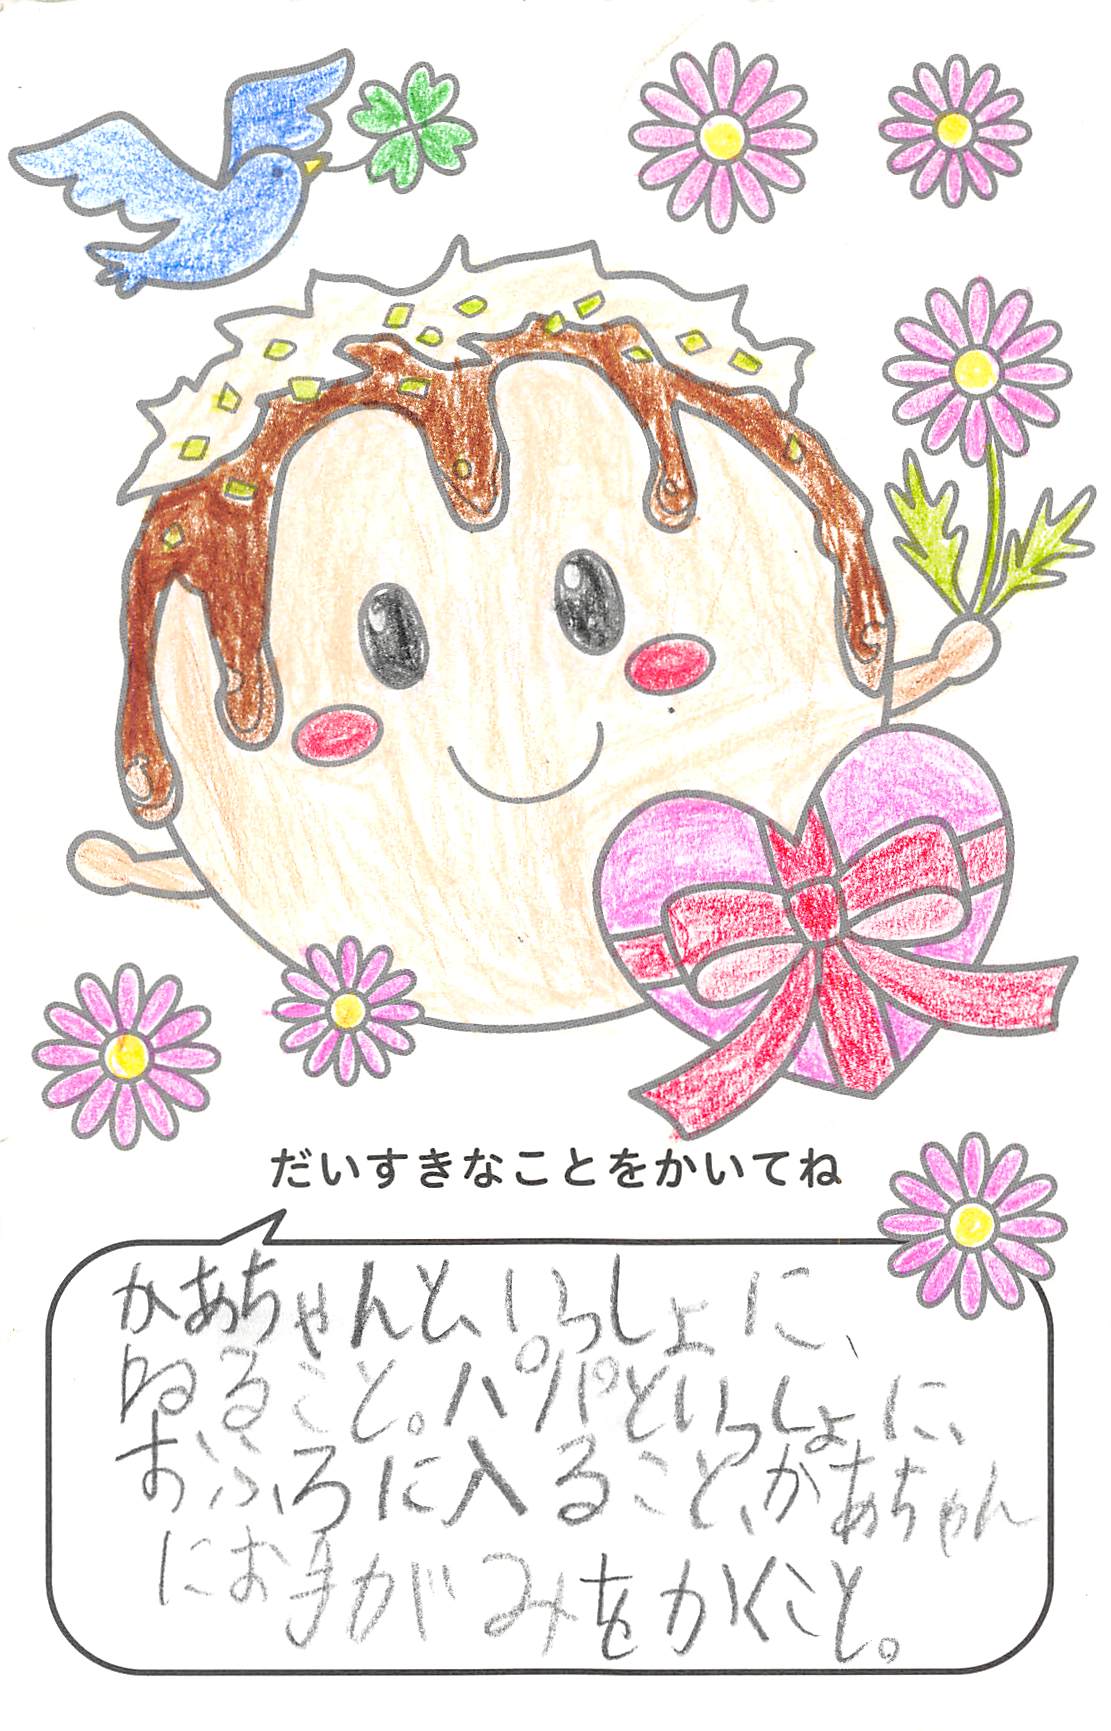 だいすきなことをかいてね
かあちゃんと、いっしょに、
ねること。パパといっしょに、
おふろに入ること、かあちゃん
にお手がみをかくこと。